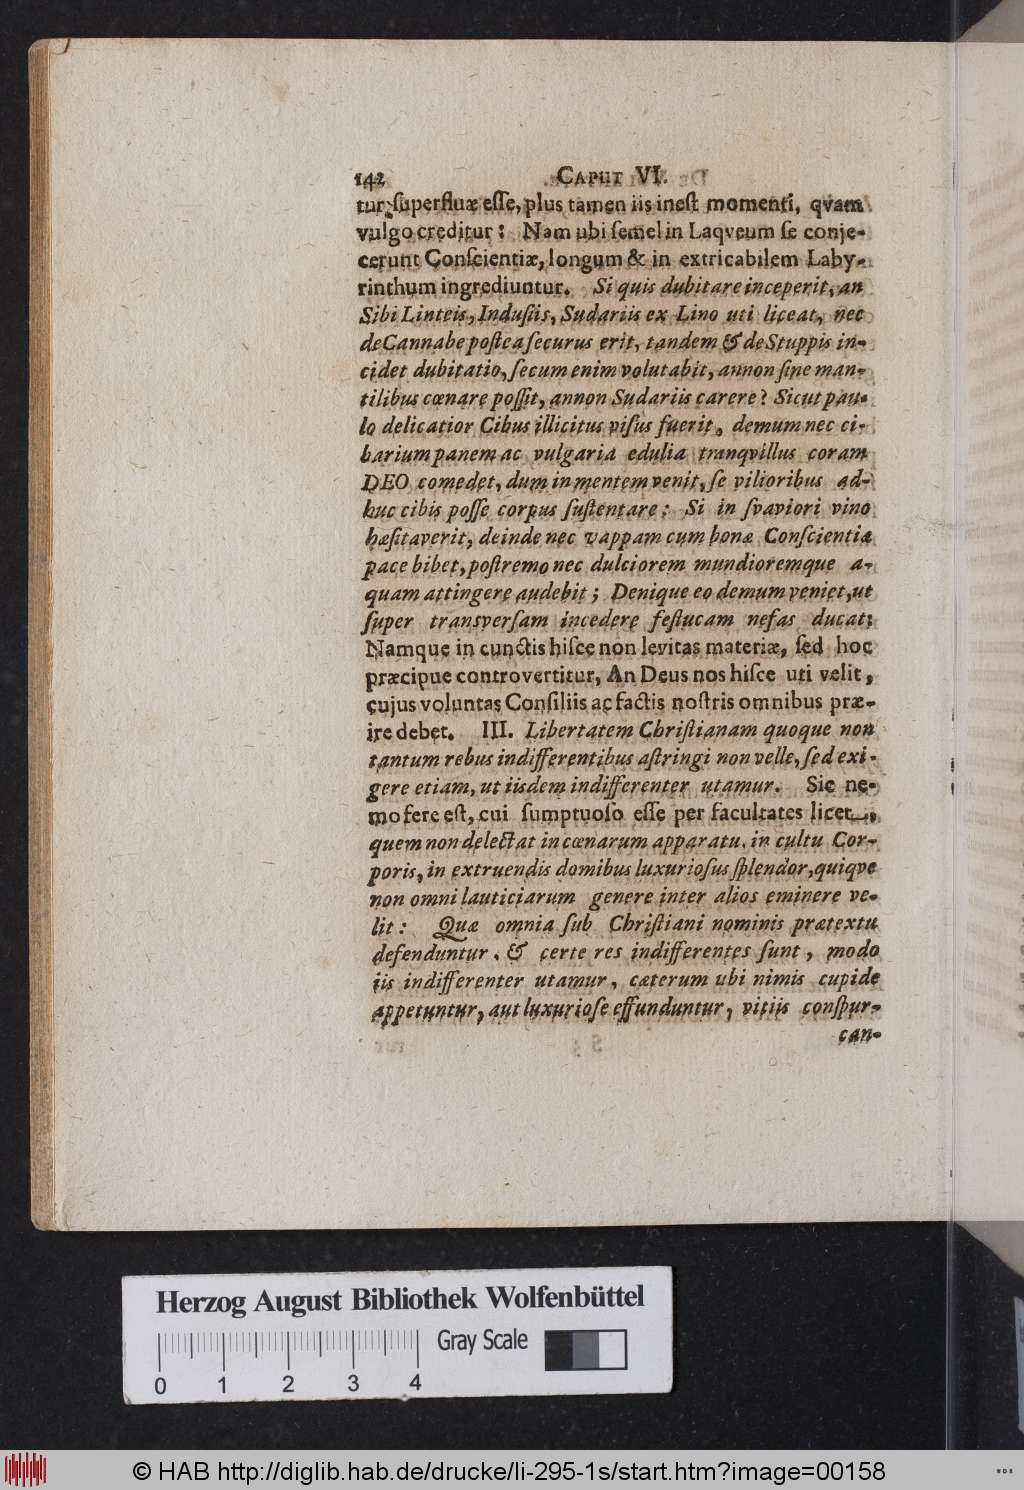 142 CAPUT VI.
tur, ſuperfluæ eſſe, plus tamen iis ineſt momenti, qvam
vulgo creditur: Nam ubi ſemel in Laqveum ſe conje-
cerunt Conſcientiæ, longum & in extricabilem Laby-
rinthum ingrediuntur. Si quis dubitare inceperit, an
Sibi Linteis, Induſiis, Sudariis ex Lino uti liceat, nec
de Cannabe poſtea ſecurus erit, tandem & de Stuppis in-
cidet dubitatio, ſecum enim volutabit, annon ſine man-
tilibus cœnare poſſit, annon Sudariis carere? Sicut pau-
lo delicatior Cibus illicitus viſus fuerit, demum nec ci-
barium panem ac vulgaria edulia tranqvillus coram
DEO comedet, dum in mentem venit, ſe vilioribus ad-
huc cibis poſſe corpus ſuſtentare: Si in ſvaviori vino
hæſitaverit, deinde nec vappam cum bonæ Conſcientiæ
pace bibet, poſtremo nec dulciorem mundioremque a-
quam attingere audebit; Denique eo demum veniet, ut
ſuper transverſam incedere feſtucam nefas ducat:
Namque in cunctis hiſce non levitas materiæ, ſed hoc
præcipue controvertitur, An Deus nos hiſce uti velit,
cujus voluntas Conſiliis ac factis noſtris omnibus præ-
ire debet. III. Libertatem Chriſtianam quoque non
tantum rebus indifferentibus aſtringi non velle, ſed exi-
gere etiam, ut iisdem indifferenter utamur. Sic ne-
mo fere eſt, cui ſumptuoſo eſſe per facultates licet,
quem non delectat in cœnarum apparatu, in cultu Cor-
poris, in extruendis domibus luxurioſus ſplendor, quiqve
non omni lauticiarum genere inter alios eminere ve-
lit: Quæ omnia ſub Chriſtiani nominis prætextu
defenduntur, & certe res indifferentes ſunt, modo
iis indifferenter utamur, cæterum ubi nimis cupide
appetuntur, aut luxurioſe effunduntur, vitiis conſpur-
can-
Herzog August Bibliothek Wolfenbüttel
Gray Scale
0 1 2 3 4
© HAB http://diglib.hab.de/drucke/li-295-1s/start.htm?image=00158